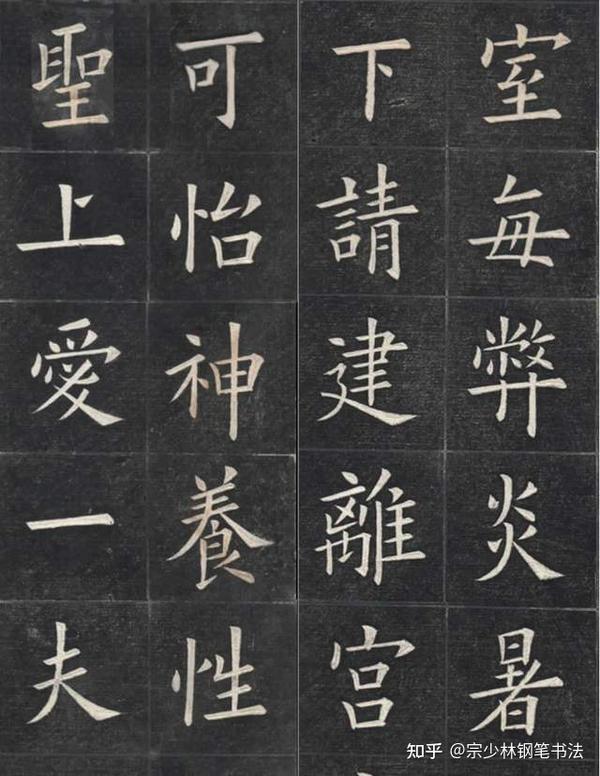 室每弊炎暑
下請建離宮
可怡神養性
聖上愛一夫
知乎 @宗少林钢笔书法